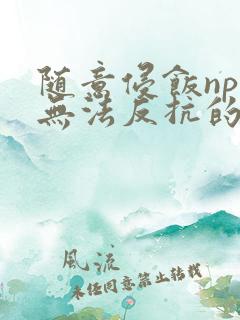 随意侵飯np
無法反抗的
風流
未任同意禁止转载